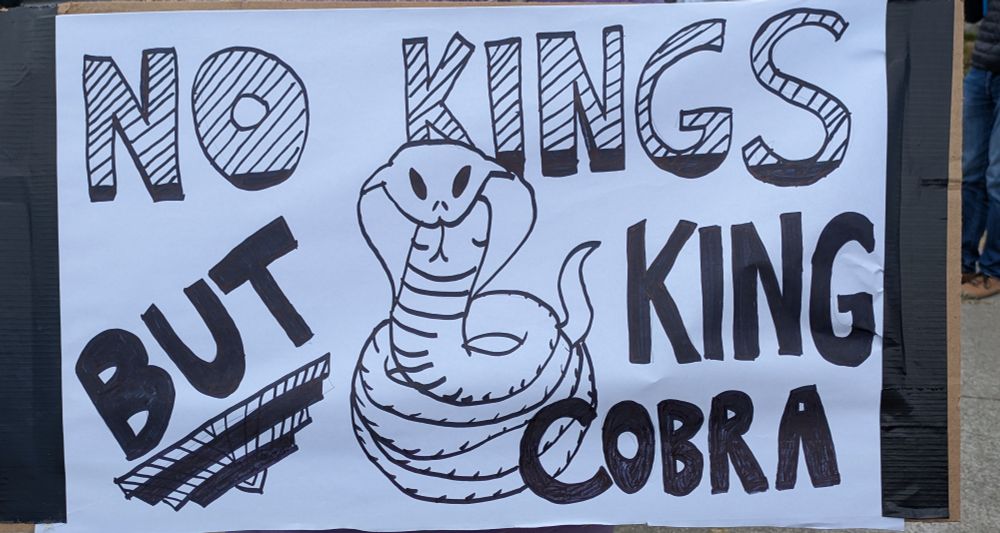 NO KINGS
BUT
KING
COBRA